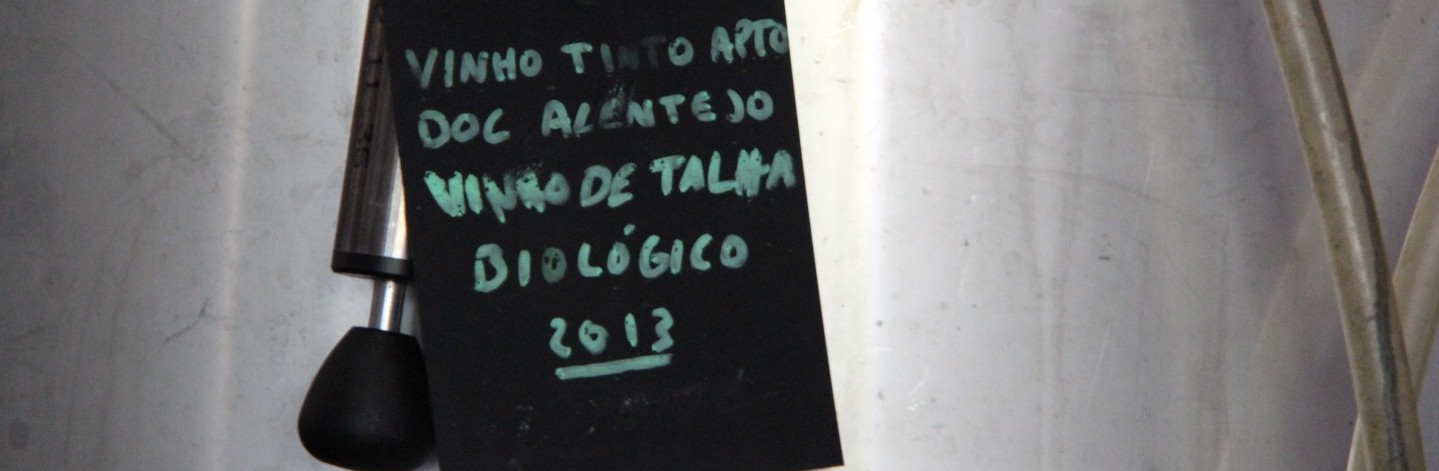 VINHO TINTO APTO
DOC ALENTEJO
VINHO DE TALHA
BIOLÓGICO
2013